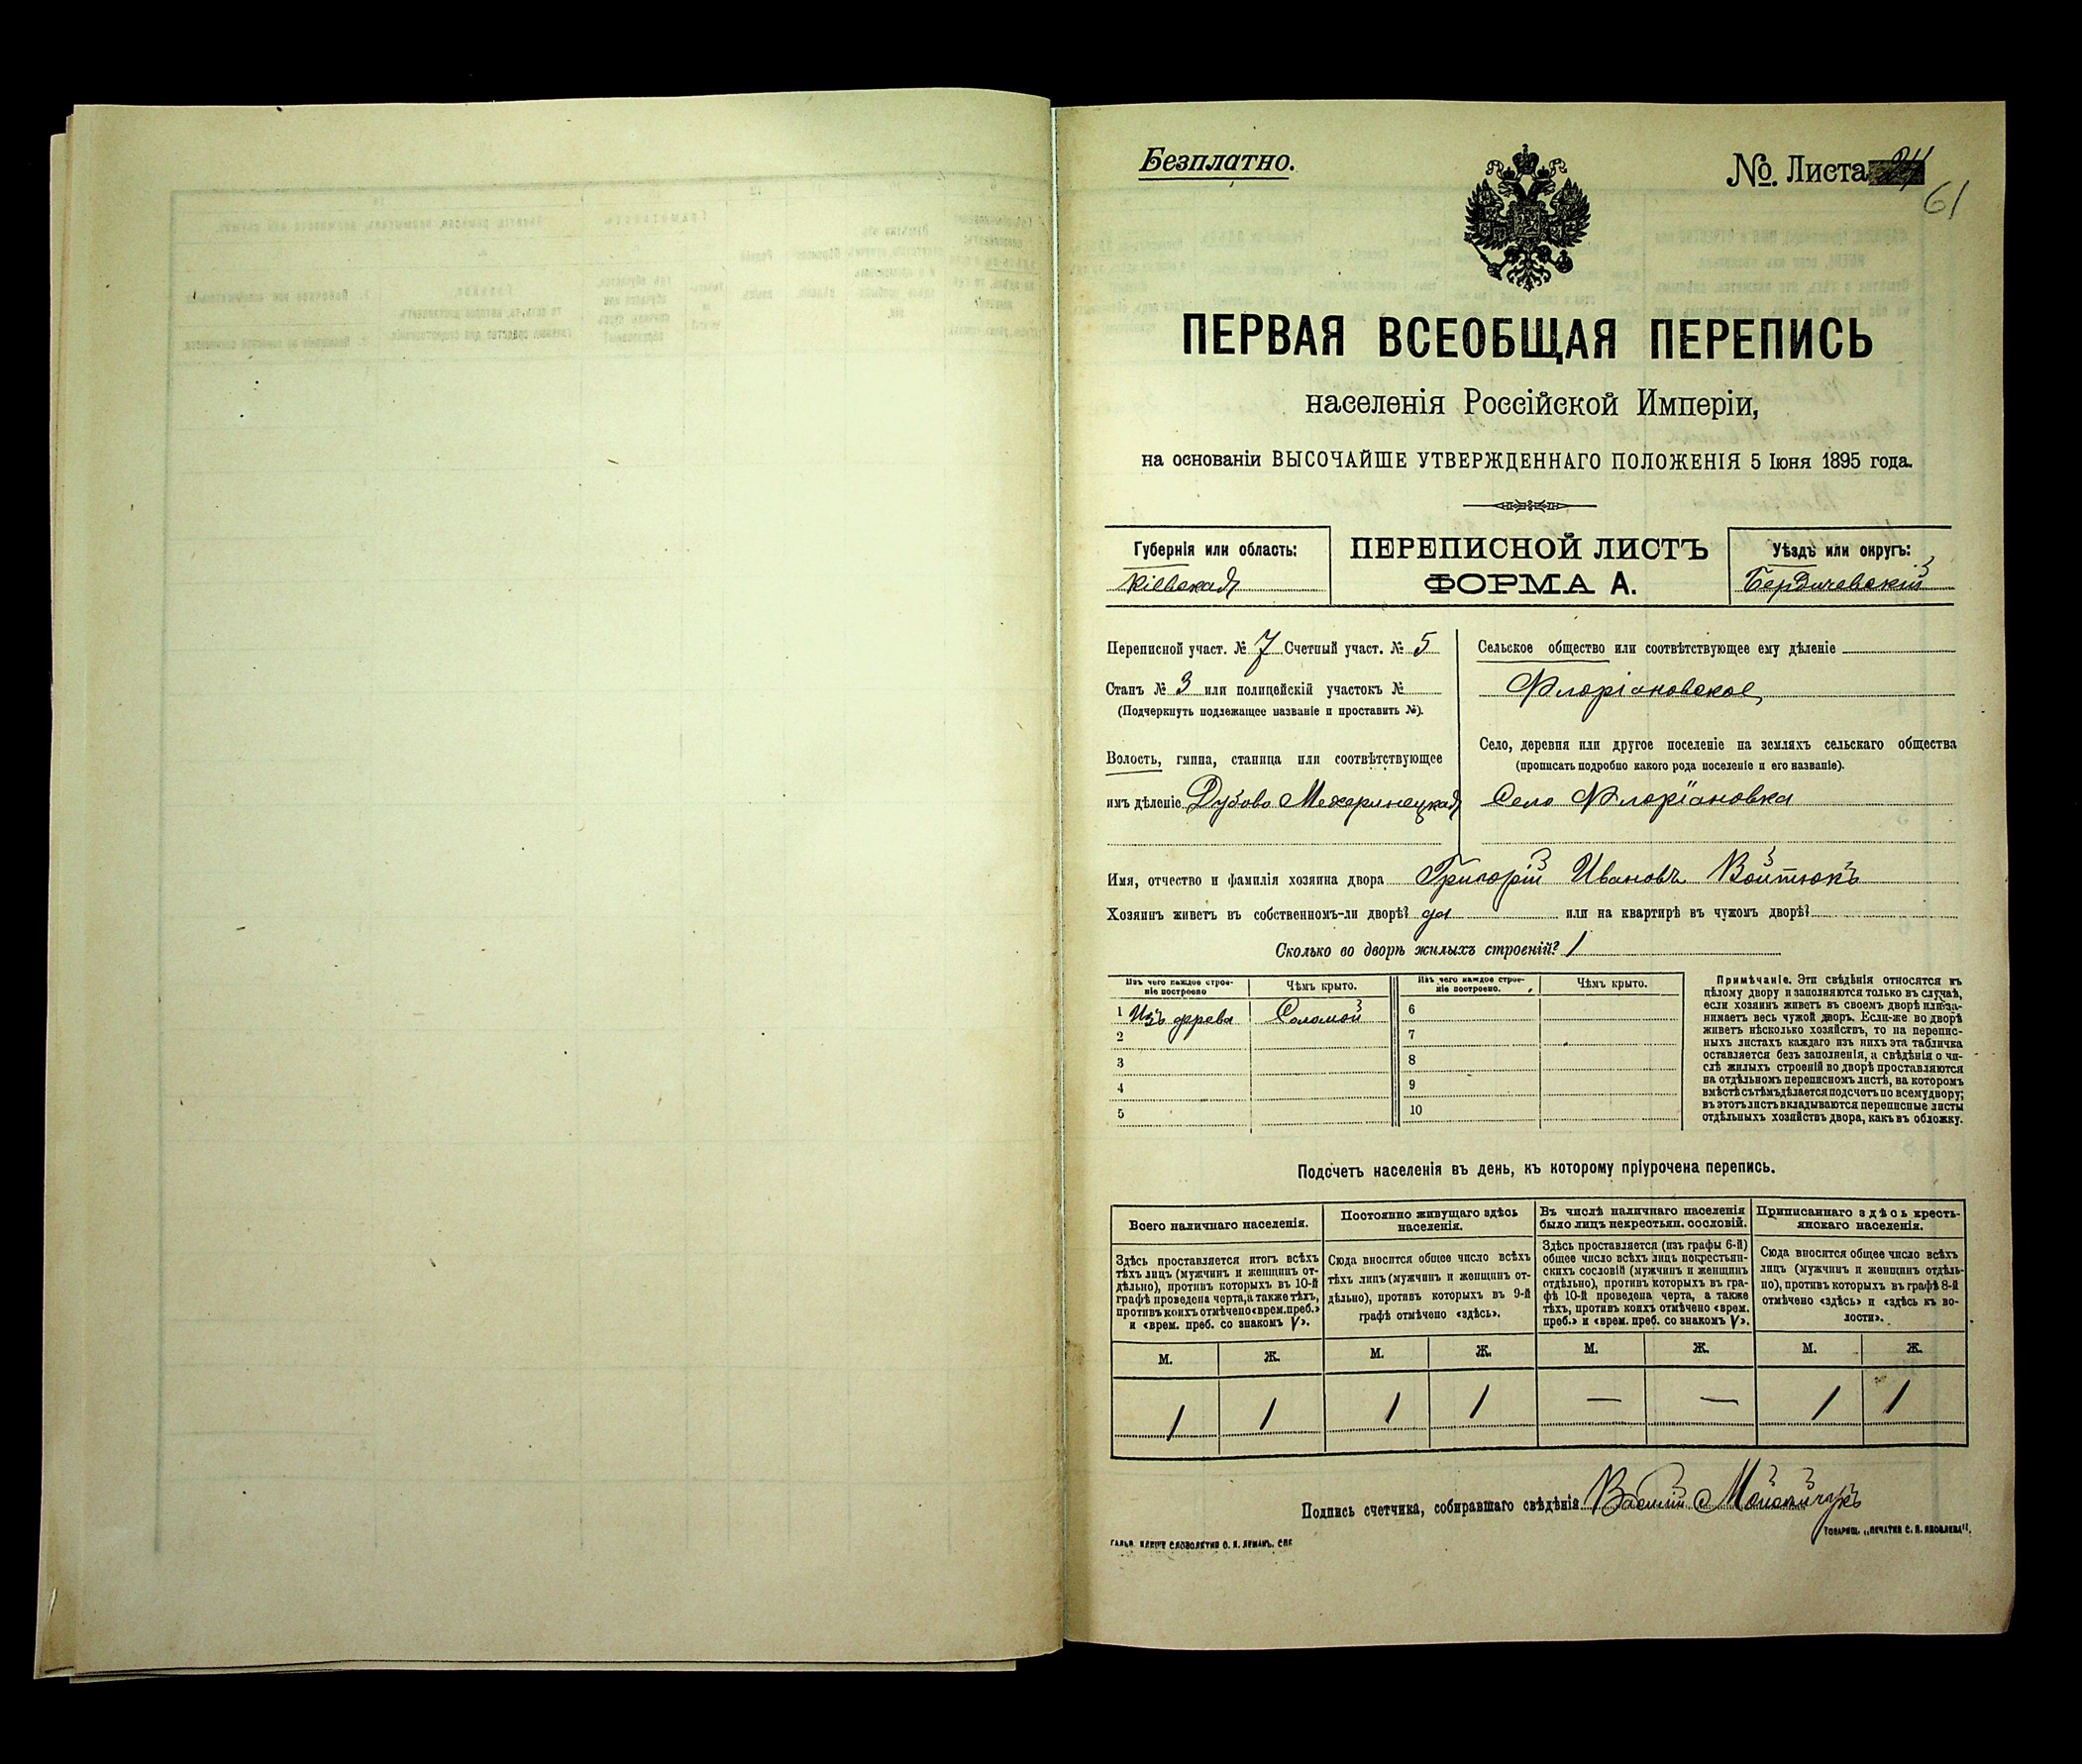 Безплатно.
№. Листа 24
61
ПЕРВАЯ ВСЕОБЩАЯ ПЕРЕПИСЬ
населенія Россійской Имперіи,
на основаніи ВЫСОЧАЙШЕ УТВЕРЖДЕННАГО ПОЛОЖЕНІЯ 5 Іюня 1895 года.
Губернія или область:
Кіевская
ПЕРЕПИСНОЙ ЛИСТЪ
ФОРМА А.
Уѣздъ или округъ:
Бердичевскій
Переписной участ. № 7 Счетный участ. № 5
Станъ № 3 или полицейскій участокъ №
(Подчеркнуть подлежащее названіе и проставить №).
Волость, гмина, станица или соотвѣтствующее
имъ дѣленіе Дубово Межеринецкая
Сельское общество или соотвѣтствующее ему дѣленіе
Флоріановское
Село, деревня или другое поселеніе на земляхъ сельскаго общества
(прописать подробно какого рода поселеніе и его названіе).
Село Флоріановка
Имя, отчество и фамилія хозяина двора Григорій Ивановъ Войтюкъ
Хозяинъ живетъ въ собственномъ-ли дворѣ? да или на квартирѣ въ чужомъ дворѣ?
Сколько во дворѣ жилыхъ строеній? 1
Изъ чего каждое строе-
ніе построено
Чѣмъ крыто.
Изъ чего каждое строе-
ніе построено.
Чѣмъ крыто.
1 Изъ дерева Соломой 6
2 7
3 8
4 9
5 10
Примѣчаніе. Эти свѣдѣнія относятся къ
цѣлому двору и заполняются только въ случаѣ,
если хозяинъ живетъ въ своемъ дворѣ или за-
нимаетъ весь чужой дворъ. Если-же во дворѣ
живетъ нѣсколько хозяйствъ, то на перепис-
ныхъ листахъ каждаго изъ нихъ эта табличка
оставляется безъ заполненія, а свѣдѣнія о чи-
слѣ жилыхъ строеній во дворѣ проставляются
на отдѣльномъ переписномъ листѣ, на которомъ
вмѣстѣ съ тѣмъ дѣлается подсчетъ по всему двору;
въ этотъ листъ вкладываются переписные листы
отдѣльныхъ хозяйствъ двора, какъ въ обложку.
Подсчетъ населенія въ день, къ которому пріурочена перепись.
Всего наличнаго населенія.
Здѣсь проставляется итогъ всѣхъ
тѣхъ лицъ (мужчинъ и женщинъ от-
дѣльно), противъ которыхъ въ 10-й
графѣ проведена черта, а также тѣхъ,
противъ коихъ отмѣчено «врем. преб.»
и «врем. преб. со знакомъ V».
Постоянно живущаго здѣсь
населенія.
Сюда вносится общее число всѣхъ
тѣхъ лицъ (мужчинъ и женщинъ от-
дѣльно), противъ которыхъ въ 9-й
графѣ отмѣчено «здѣсь».
Въ числѣ наличнаго населенія
было лицъ некрестьян. сословій.
Здѣсь проставляется (изъ графы 6-й)
общее число всѣхъ лицъ некрестьян-
скихъ сословій (мужчинъ и женщинъ
отдѣльно), противъ которыхъ въ гра-
фѣ 10-й проведена черта, а также
тѣхъ, противъ коихъ отмѣчено «врем.
преб.» и «врем. преб. со знакомъ V».
Приписаннаго здѣсь кресть-
янскаго населенія.
Сюда вносится общее число всѣхъ
лицъ (мужчинъ и женщинъ отдѣль-
но), противъ которыхъ въ графѣ 8-й
отмѣчено «здѣсь» и «здѣсь къ во-
лости».
М. Ж. М. Ж. М. Ж. М. Ж.
1 1 1 1 — — 1 1
Подпись счетчика, собиравшаго свѣдѣнія Василій
ГАЛЬВ. КЛИШЕ СЛОВОЛИТНИ О. И. ЛЕМАНЪ. СПБ
ТОВАРИЩ. „ПЕЧАТНЯ С. П. ЯКОВЛЕВА".